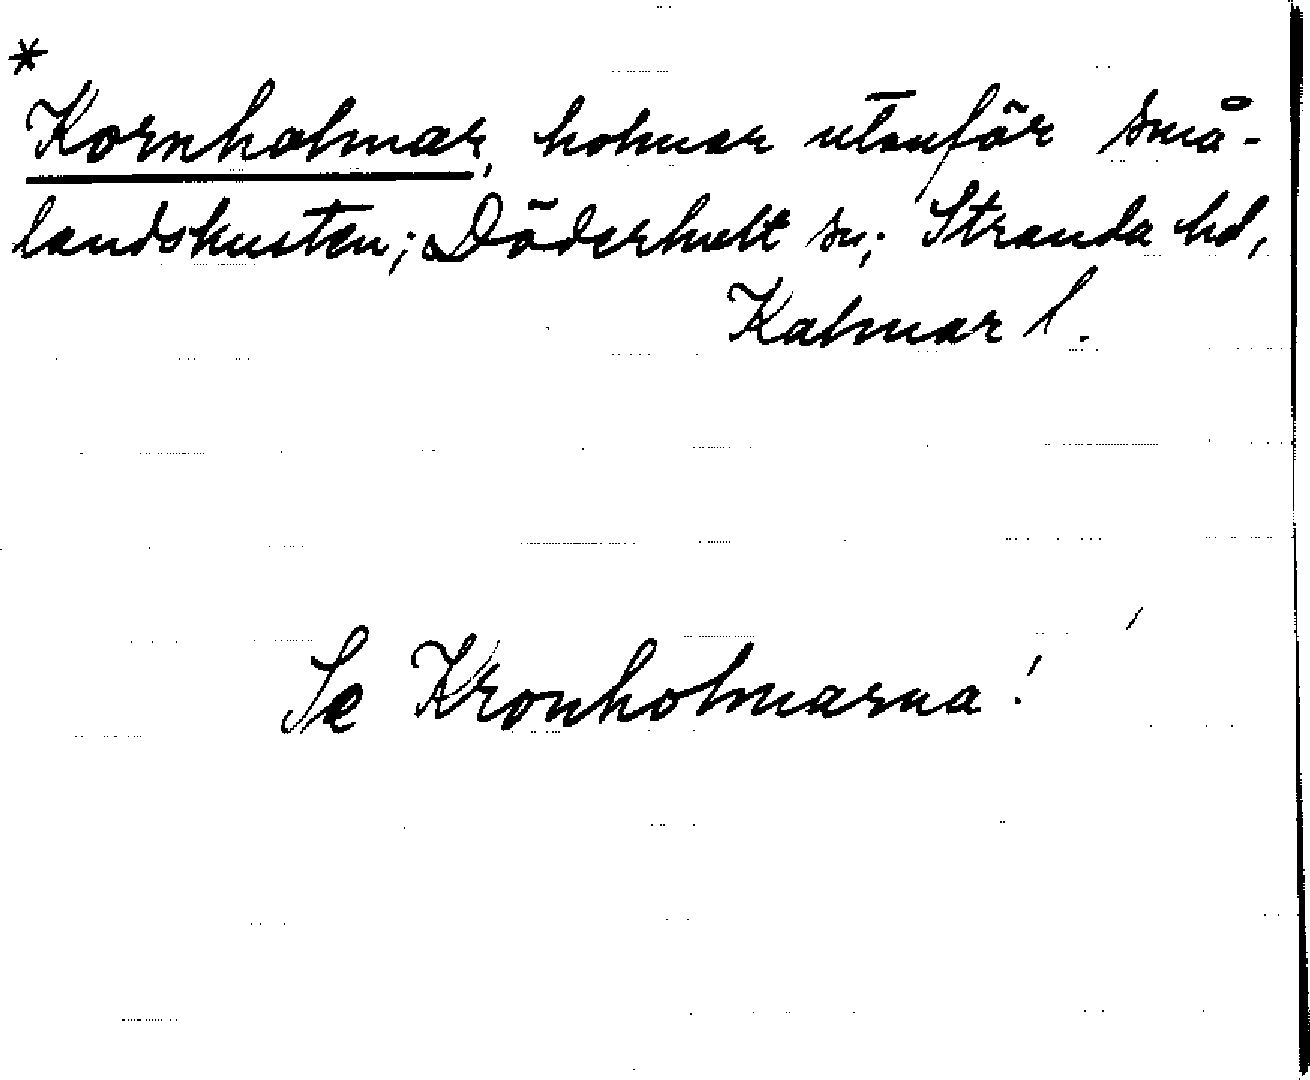 *
Kornholmar, holmar utanför små-
landskusten; Döderhult sn; Stranda hd,
Kalmar l.
Se Kronholmarna!